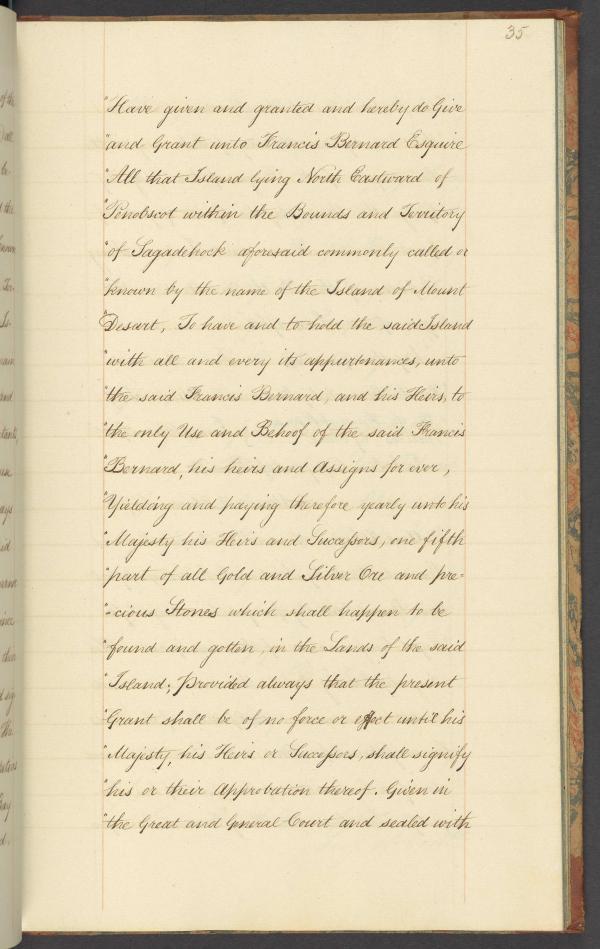 35
"Have given and granted and hereby do Give
"and Grant unto Francis Bernard Esquire
"All that Island lying North Eastward of
"Penobscot within the Bounds and Territory
"of Sagadehock aforesaid commonly called or
"known by the name of the Island of Mount
"Desart, To have and to hold the said Island
"with all and every its appurtenances, unto
"the said Francis Bernard, and his Heirs, to
"the only Use and Behoof of the said Francis
"Bernard, his heirs and Assigns for ever,
"Yielding and paying therefore yearly unto his
"Majesty his Heirs and Successors, one fifth
"part of all Gold and Silver Ore and pre=
"-cious Stones which shall happen to be
"found and gotten, in the Lands of the said
"Island; Provided always that the present
"Grant shall be of no force or effect until his
"Majesty, his Heirs or Successors, shall signify
"his or their Approbation thereof. Given in
"the Great and General Court and sealed with